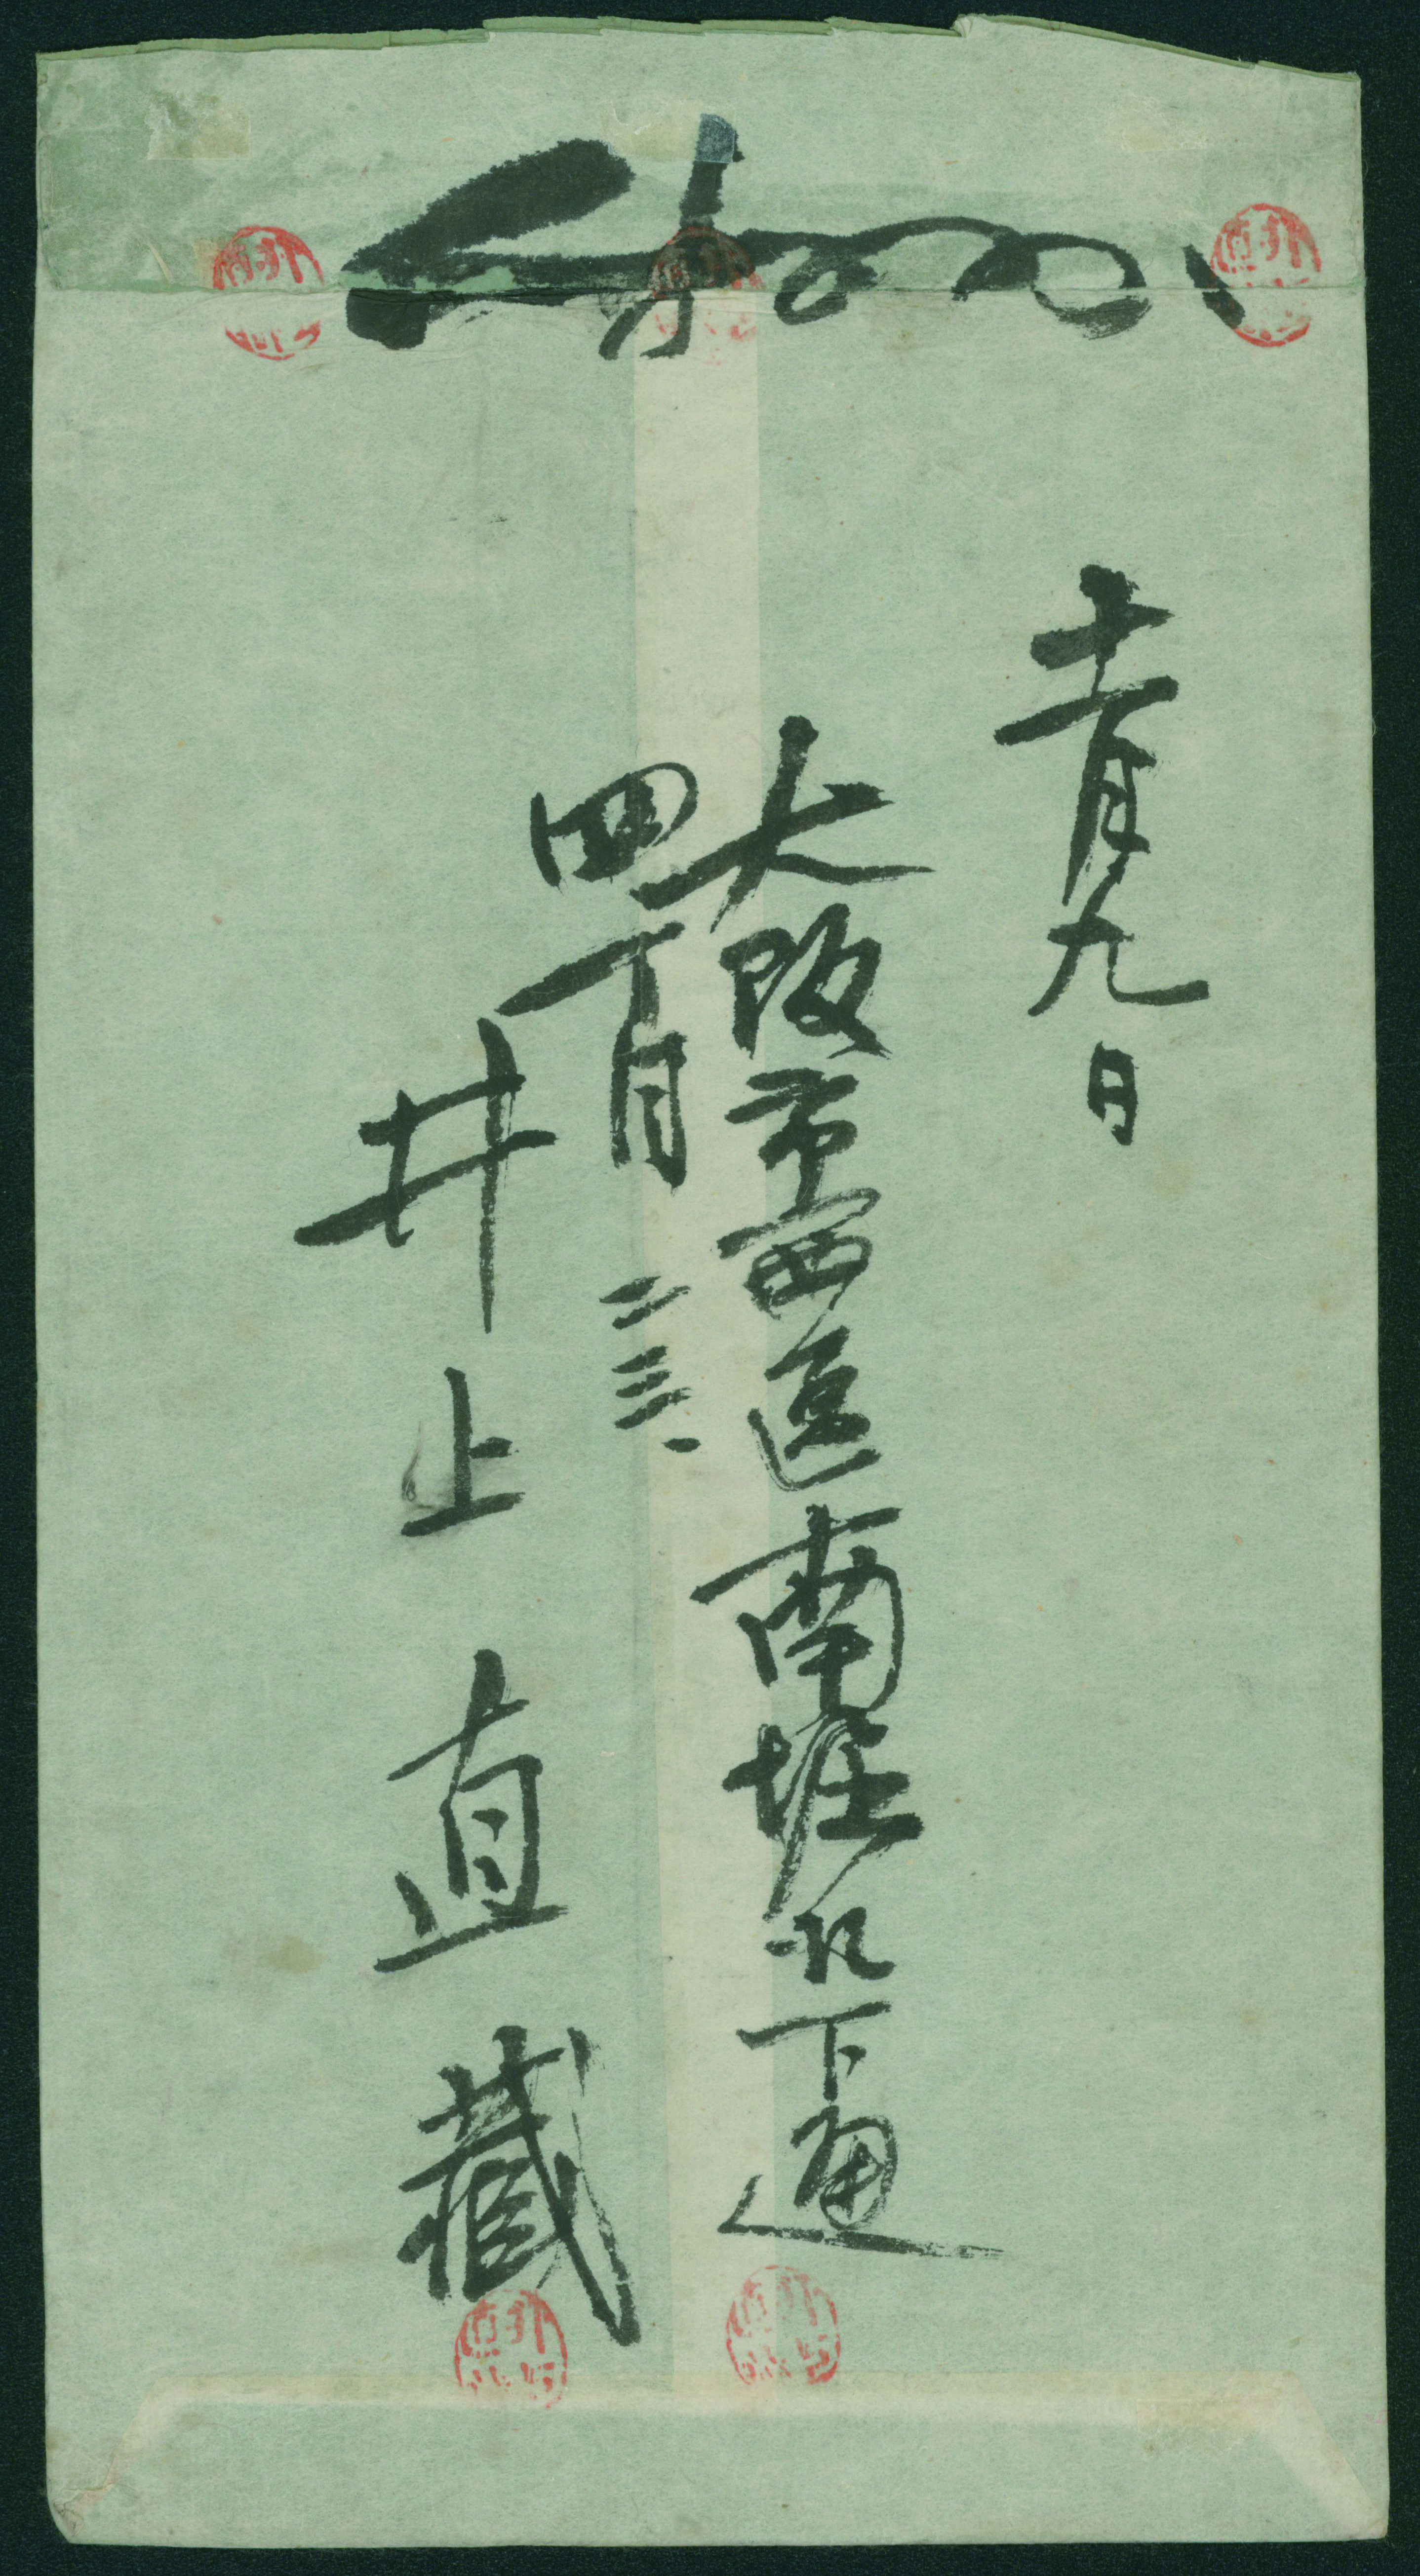 十一月九日
大阪市西區南堀江下通
四丁目二三
井上直藏